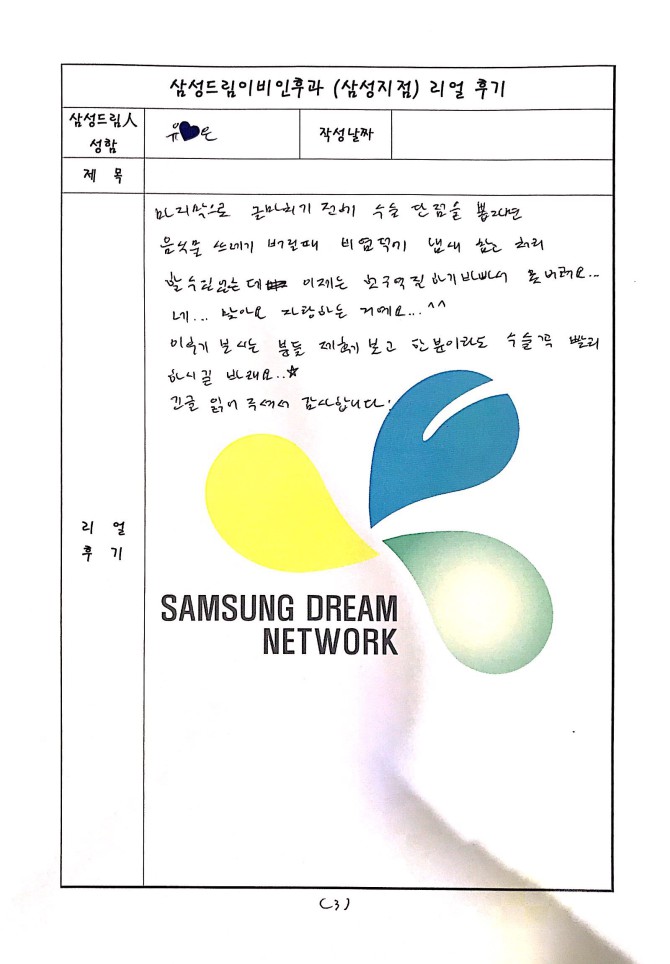 삼성드림이비인후과 (삼성지점) 리얼 후기
삼성드림人
성함
유 은
작성날짜
제 목
마지막으로 글마치기 전에 수술 단점을 뽑자면
음식물 쓰레기 버릴때 비염적에 냄새 참고 처리
할 수 있었는데 이제는 헛구역질 하기 바빠서 못버려요...
네... 맞아요 자랑하는 거예요... ^^
이후기 보시는 분들 제후기 보고 한분이라도 수술 꼭 빨리
하시길 바래요..☆
긴글 읽어 주셔서 감사합니다.
리 얼
후 기
SAMSUNG DREAM
NETWORK
(3)